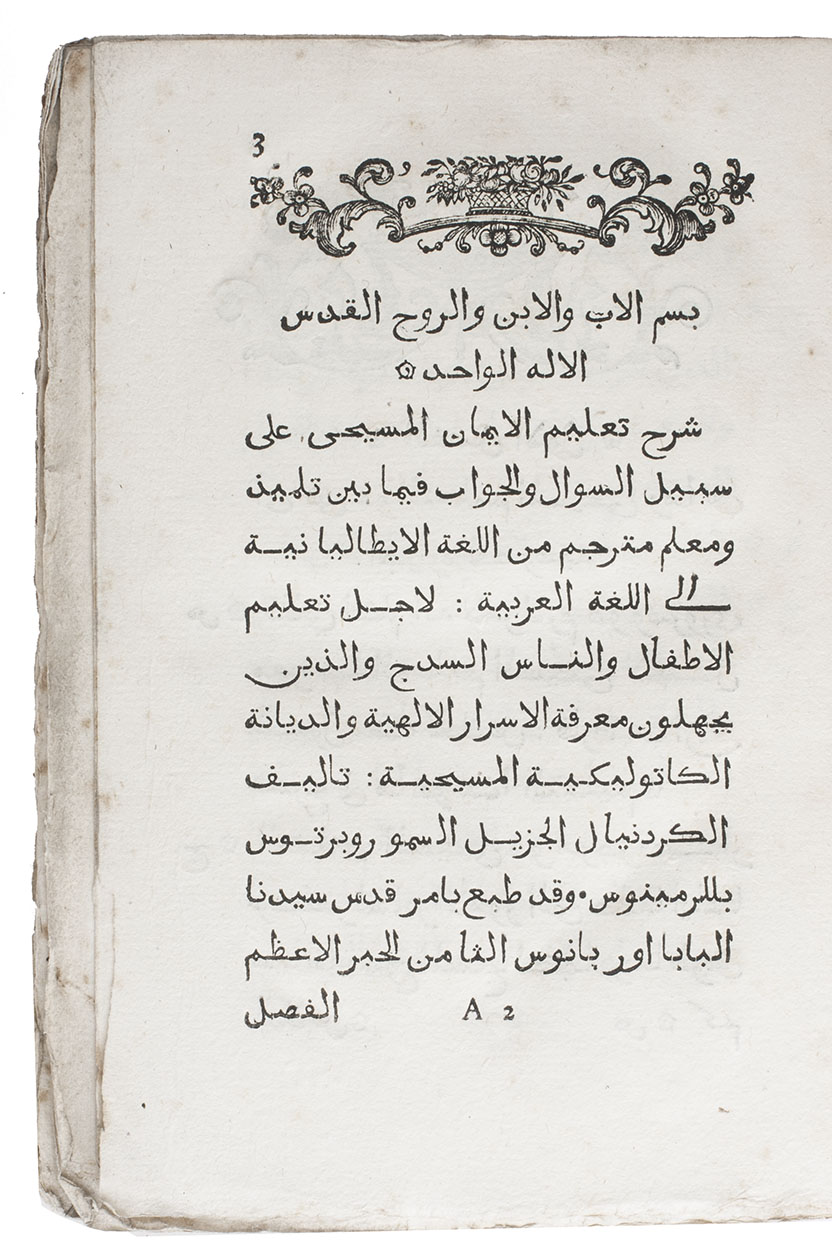 3
بسم الاب والابن والروح القدس
الاله الواحد
شرح تعليم الايمان المسيحى على
سبيل السوال والجواب فيما بين تلميذ
ومعلم مترجم من اللغة الايطاليا نية
الى اللغة العربية : لاجل تعليم
الاطفال والناس السدج والذين
يجهلون معرفة الاسرار الالهية والديانة
الكاتوليكية المسيحية : تاليف
الكردنيال الجزيل السمو روبرتوس
بللرمينوس • وقد طبع بامر قدس سيدنا
البابا اور بانوس الثامن الحبر الاعظم
A 2 الفصل